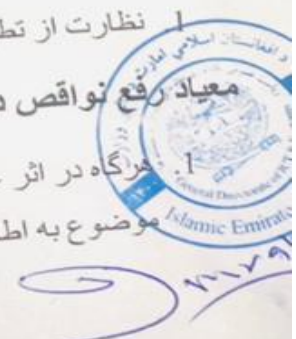 1. نظارت از تط
معیاد رفع نواقص د
1. هرگاه در اثر
موضوع به اط
د افغانستان اسلامي امارت
General Directorate of
Islamic Emirat